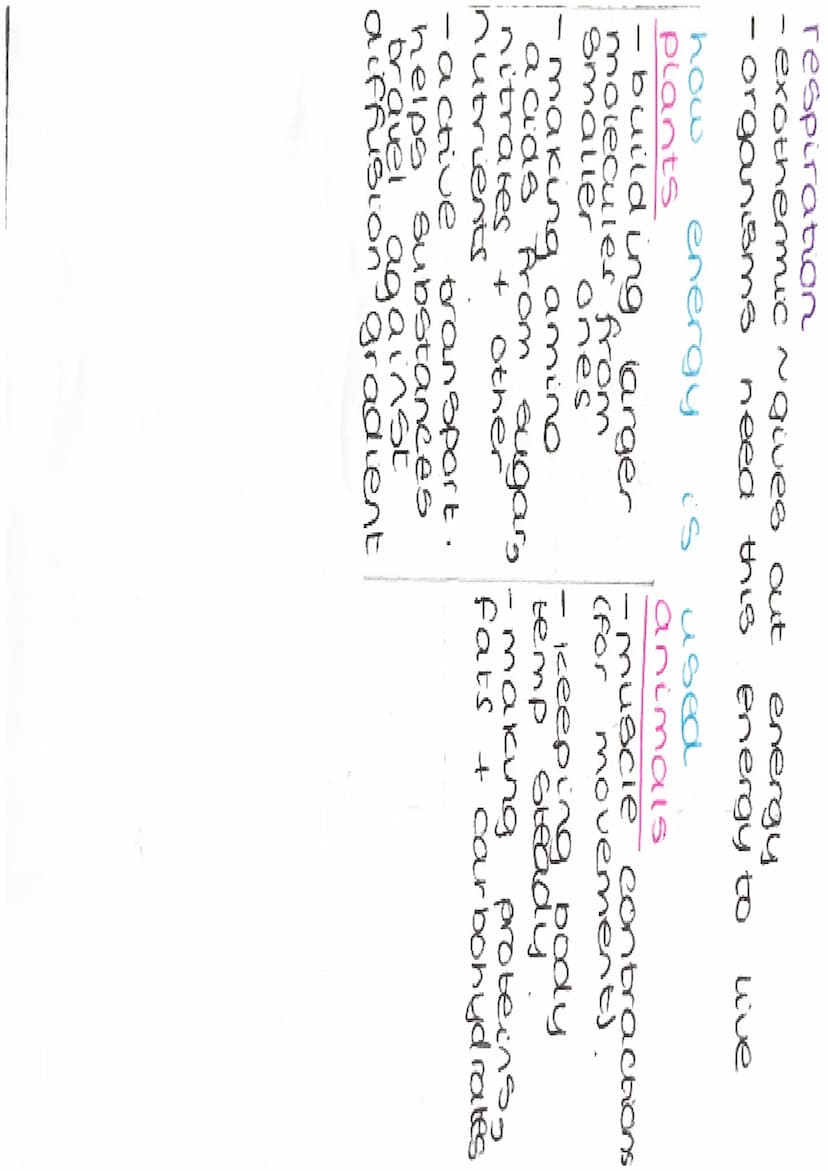 respiration
- exothermic ~ gives out energy
- organisms need this energy to live
how energy is used
plants
- building larger
molecules from
smaller ones
- making amino
acids from sugars
nitrates + other
nutrients.
- active transport.
helps substances
travel against
diffusion gradient
animals
- muscle contractions
(for movement).
- keeping body
temp steady.
- making proteins,
fats + carbohydrates